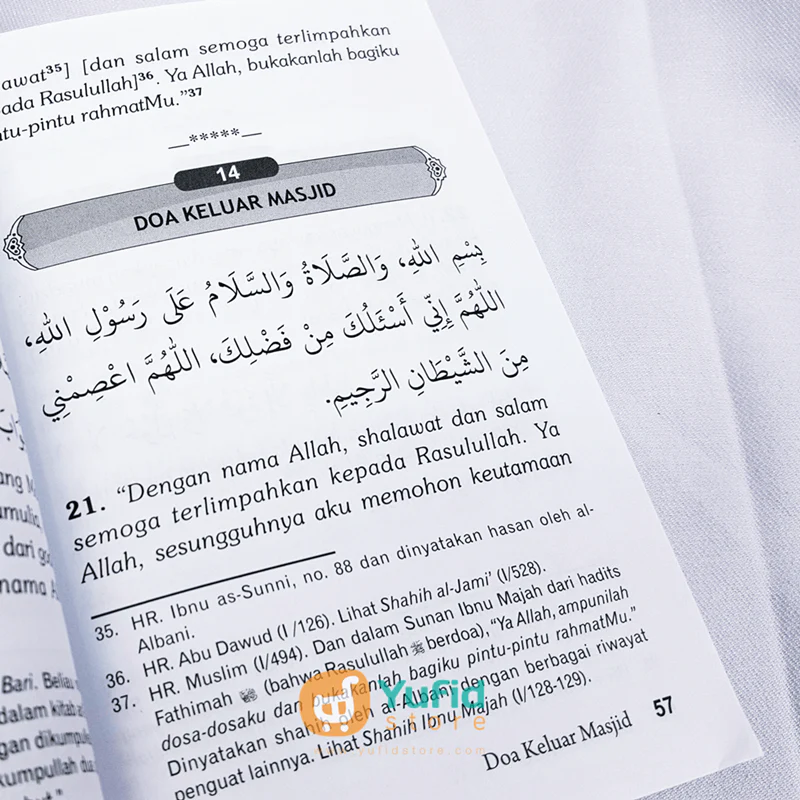 awat³⁵] [dan salam semoga terlimpahkan
ada Rasulullah]³⁶. Ya Allah, bukakanlah bagiku
tu-pintu rahmatMu.”³⁷
—*****—
14
DOA KELUAR MASJID
بِسْمِ اللهِ، وَالصَّلَاةُ وَالسَّلَامُ عَلَى رَسُوْلِ اللهِ،
اللّٰهُمَّ إِنِّي أَسْئَلُكَ مِنْ فَضْلِكَ، اللّٰهُمَّ اعْصِمْنِي
مِنَ الشَّيْطَانِ الرَّجِيمِ.
21. “Dengan nama Allah, shalawat dan salam
semoga terlimpahkan kepada Rasulullah. Ya
Allah, sesungguhnya aku memohon keutamaan
35. HR. Ibnu as-Sunni, no. 88 dan dinyatakan hasan oleh al-
Albani.
36. HR. Abu Dawud (I /126). Lihat Shahih al-Jami’ (I/528).
37. HR. Muslim (I/494). Dan dalam Sunan Ibnu Majah dari hadits
Fathimah (bahwa Rasulullah ﷺ berdoa), “Ya Allah, ampunilah
dosa-dosaku dan bukakanlah bagiku pintu-pintu rahmatMu.”
Dinyatakan shahih oleh al-Albani dengan berbagai riwayat
penguat lainnya. Lihat Shahih Ibnu Majah (I/128-129).
Doa Keluar Masjid 57
ang
mulia
dari
nama
Bari. Beliau
dalam kitab
gan dikumpul
kumpullah dua
Yufid
store
www.yufidstore.com